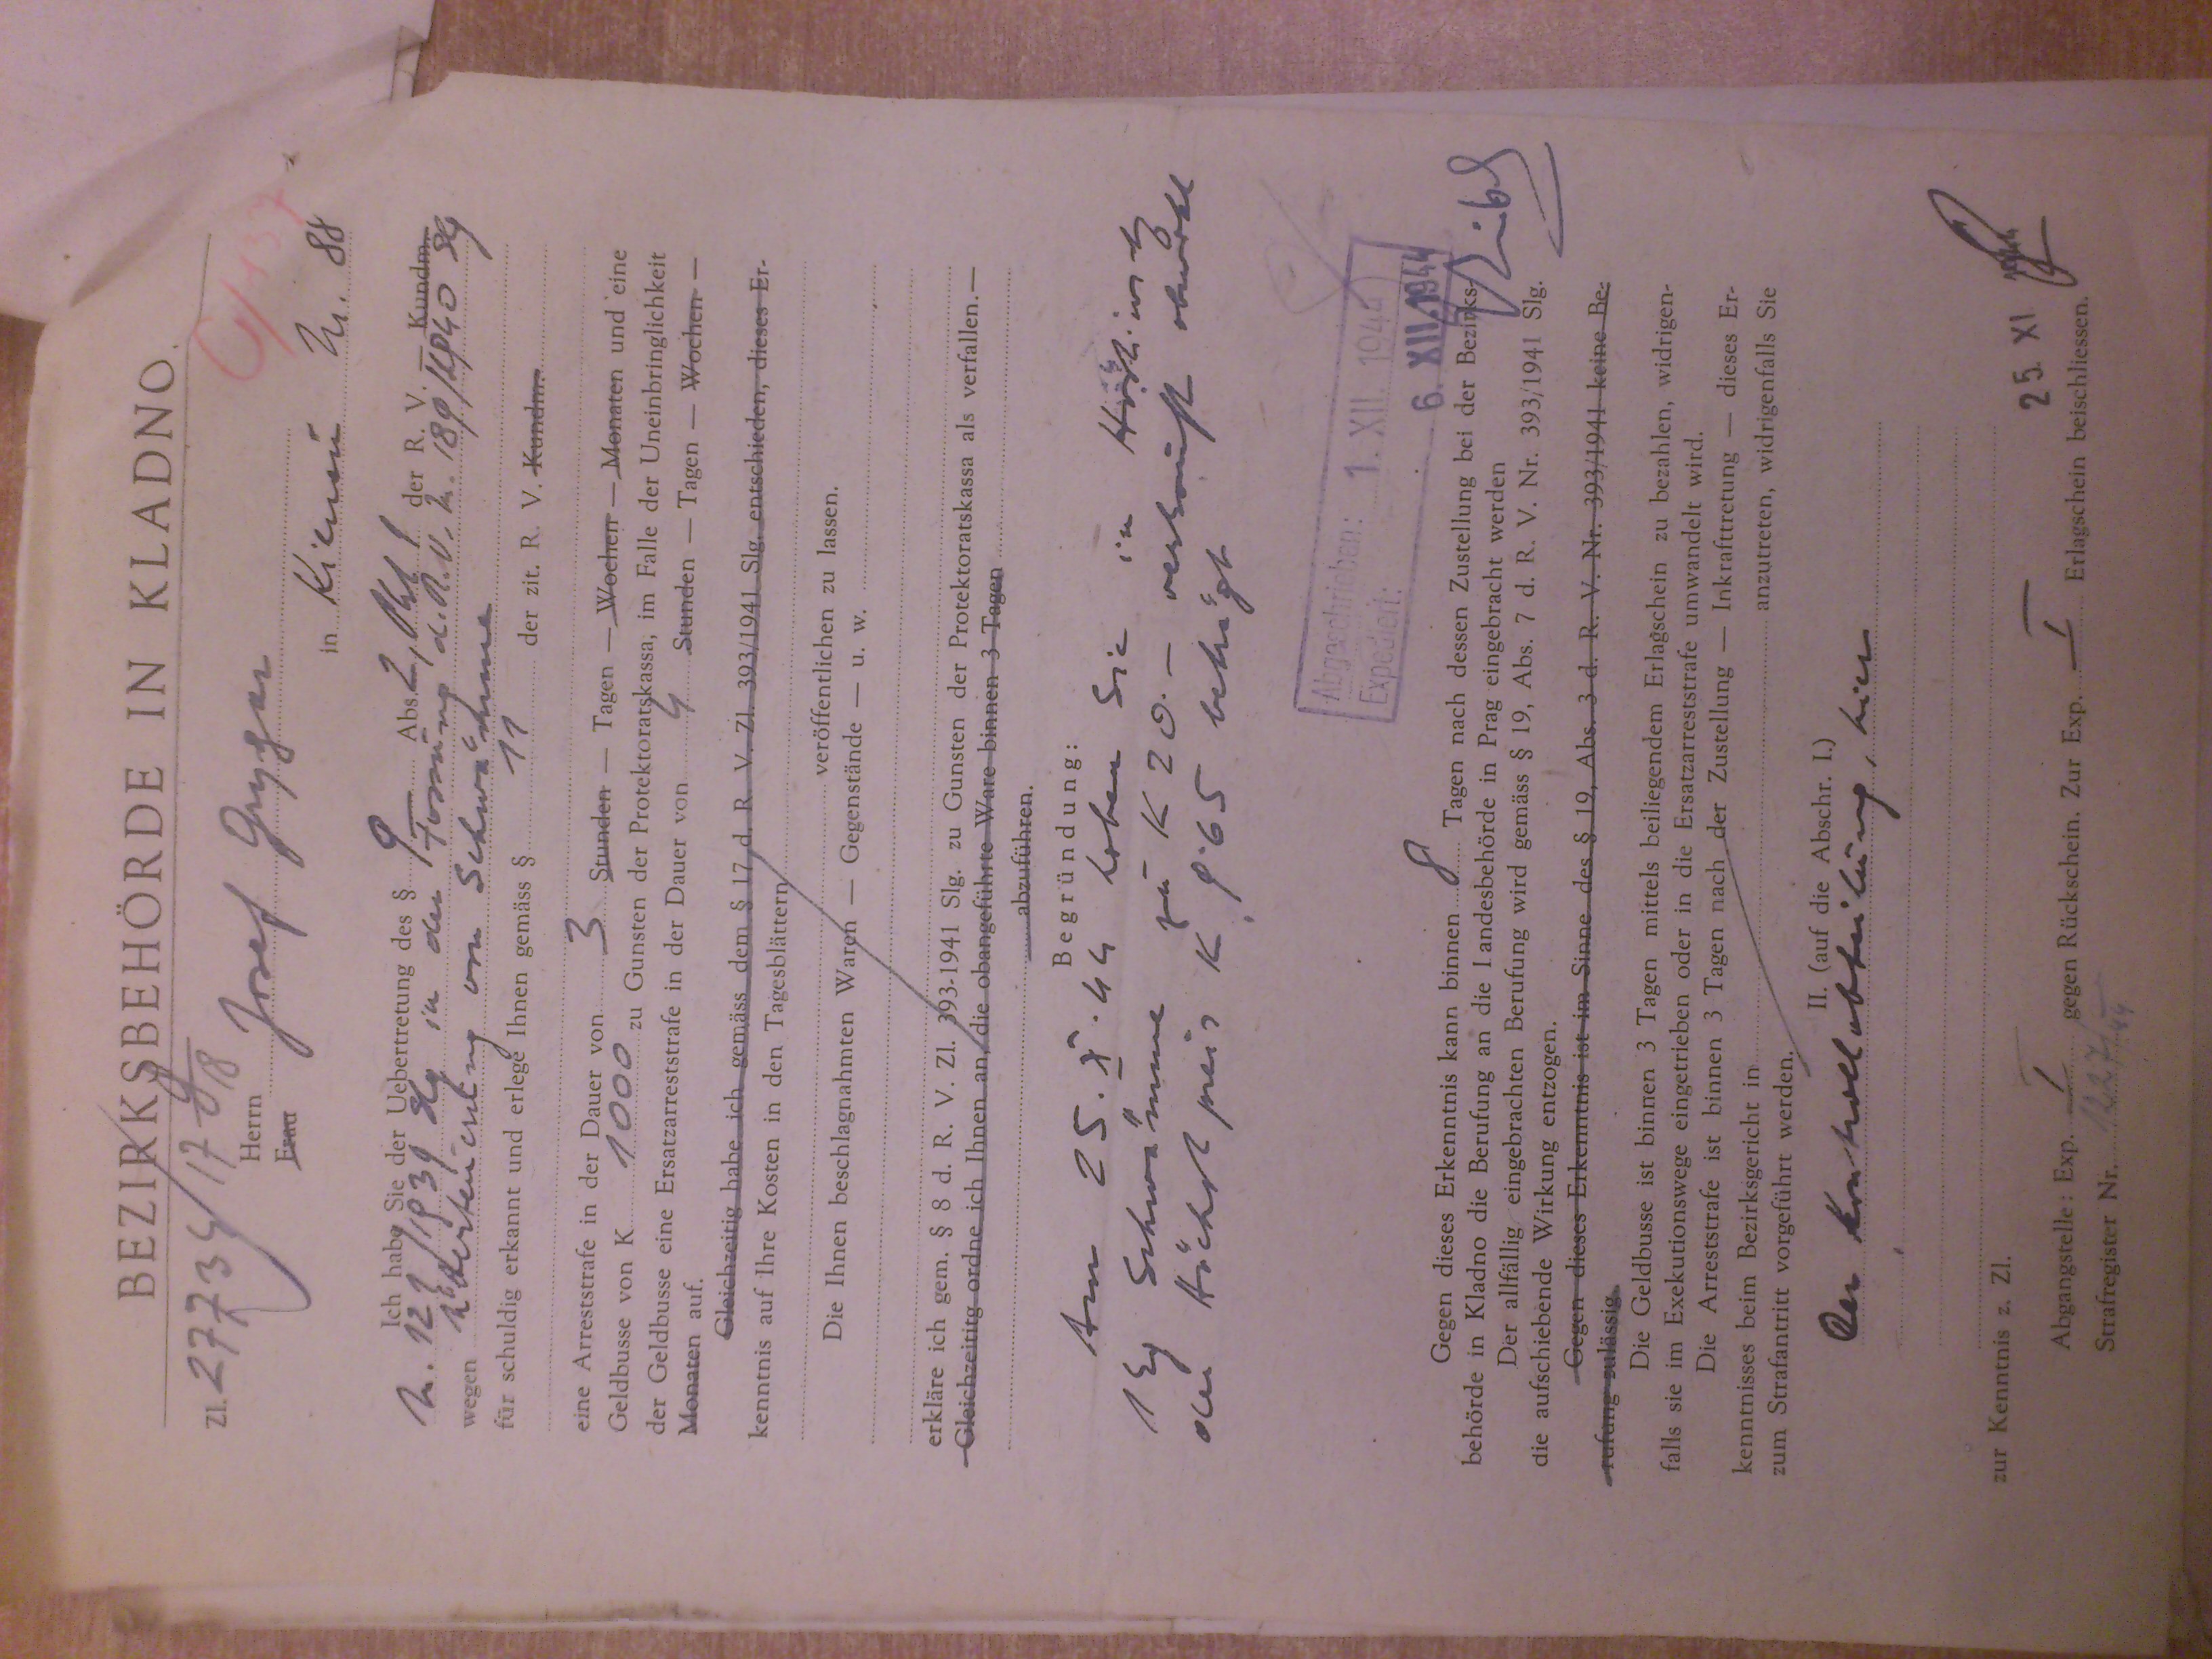 BEZIRKSBEHÖRDE IN KLADNO.
Zl. 27734/17
Herrn Josef Grygar
Frau
in Nr. 88
Ich habe Sie der Uebertretung des § 9 Abs. 2, Pkt 1 der R. V. — Kundm.
Nr. 121/1939 Slg in der Fassung d. R. V. Nr. 189/1940 Slg
wegen Überteuerung von Schwämme
für schuldig erkannt und erlege Ihnen gemäss § 11 der zit. R. V. Kundm.
eine Arreststrafe in der Dauer von 3 Stunden — Tagen — Wochen — Monaten und eine
Geldbusse von K 1000 zu Gunsten der Protektoratskassa, im Falle der Uneinbringlichkeit
der Geldbusse eine Ersatzarreststrafe in der Dauer von 4 Stunden — Tagen — Wochen —
Monaten auf.
Gleichzeitig habe ich gemäss dem § 17 d. R. V. Zl. 393/1941 Slg. entschieden, dieses Er-
kenntnis auf Ihre Kosten in den Tagesblättern
veröffentlichen zu lassen.
Die Ihnen beschlagnahmten Waren — Gegenstände — u. w.
erkläre ich gem. § 8 d. R. V. Zl. 393-1941 Slg. zu Gunsten der Protektoratskassa als verfallen.—
Gleichzeititg ordne ich Ihnen an, die obangeführte Ware binnen 3 Tagen
abzuführen.
Begründung:
Am 25. X. 44 haben Sie in
1 kg Schwämme zu K 20.— verkauft obwohl
der Höchstpreis K 9.65 beträgt
Abgeschrieben: 1. XII. 1944
Expediert:
6. XII. 1944
Gegen dieses Erkenntnis kann binnen 8 Tagen nach dessen Zustellung bei der Bezirks-
behörde in Kladno die Berufung an die Landesbehörde in Prag eingebracht werden
Der allfällig eingebrachten Berufung wird gemäss § 19, Abs. 7 d. R. V. Nr. 393/1941 Slg.
die aufschiebende Wirkung entzogen.
Gegen dieses Erkenntnis ist im Sinne des § 19, Abs. 3 d. R. V. Nr. 393/1941 keine Be-
rufung zulässig.
Die Geldbusse ist binnen 3 Tagen mittels beiliegendem Erlagschein zu bezahlen, widrigen-
falls sie im Exekutionswege eingetrieben oder in die Ersatzarreststrafe umwandelt wird.
Die Arreststrafe ist binnen 3 Tagen nach der Zustellung — Inkrafttretung — dieses Er-
kenntnisses beim Bezirksgericht in anzutreten, widrigenfalls Sie
zum Strafantritt vorgeführt werden.
II. (auf die Abschr. I.)
Der Kontrollabteilung, hier
zur Kenntnis z. Zl.
25. XI 1944
Abgangstelle: Exp. I gegen Rückschein. Zur Exp. I Erlagschein beischliessen.
Strafregister Nr. 1227/44